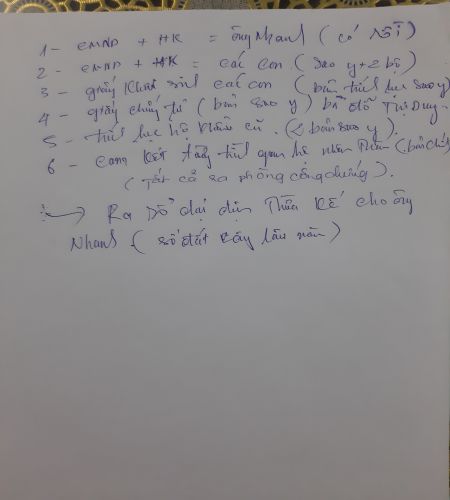 1 - CMND + HK = ông Nhanh (có rồi)
2 - CMND + HK = các con (sao y + 2 bộ)
3 - giấy khai sinh các con (bản trích lục sao y)
4 - giấy chứng tử (bản sao y) bà Đỗ Thị Duy -
5 - trích lục hộ khẩu cũ. (2 bản sao y).
6 - Cam kết tường trình quan hệ nhân thân (bản chính)
(Tất cả ra phòng công chứng).
Ra Sở đại diện thừa kế cho ông
Nhanh (sổ đất cây lâu năm)